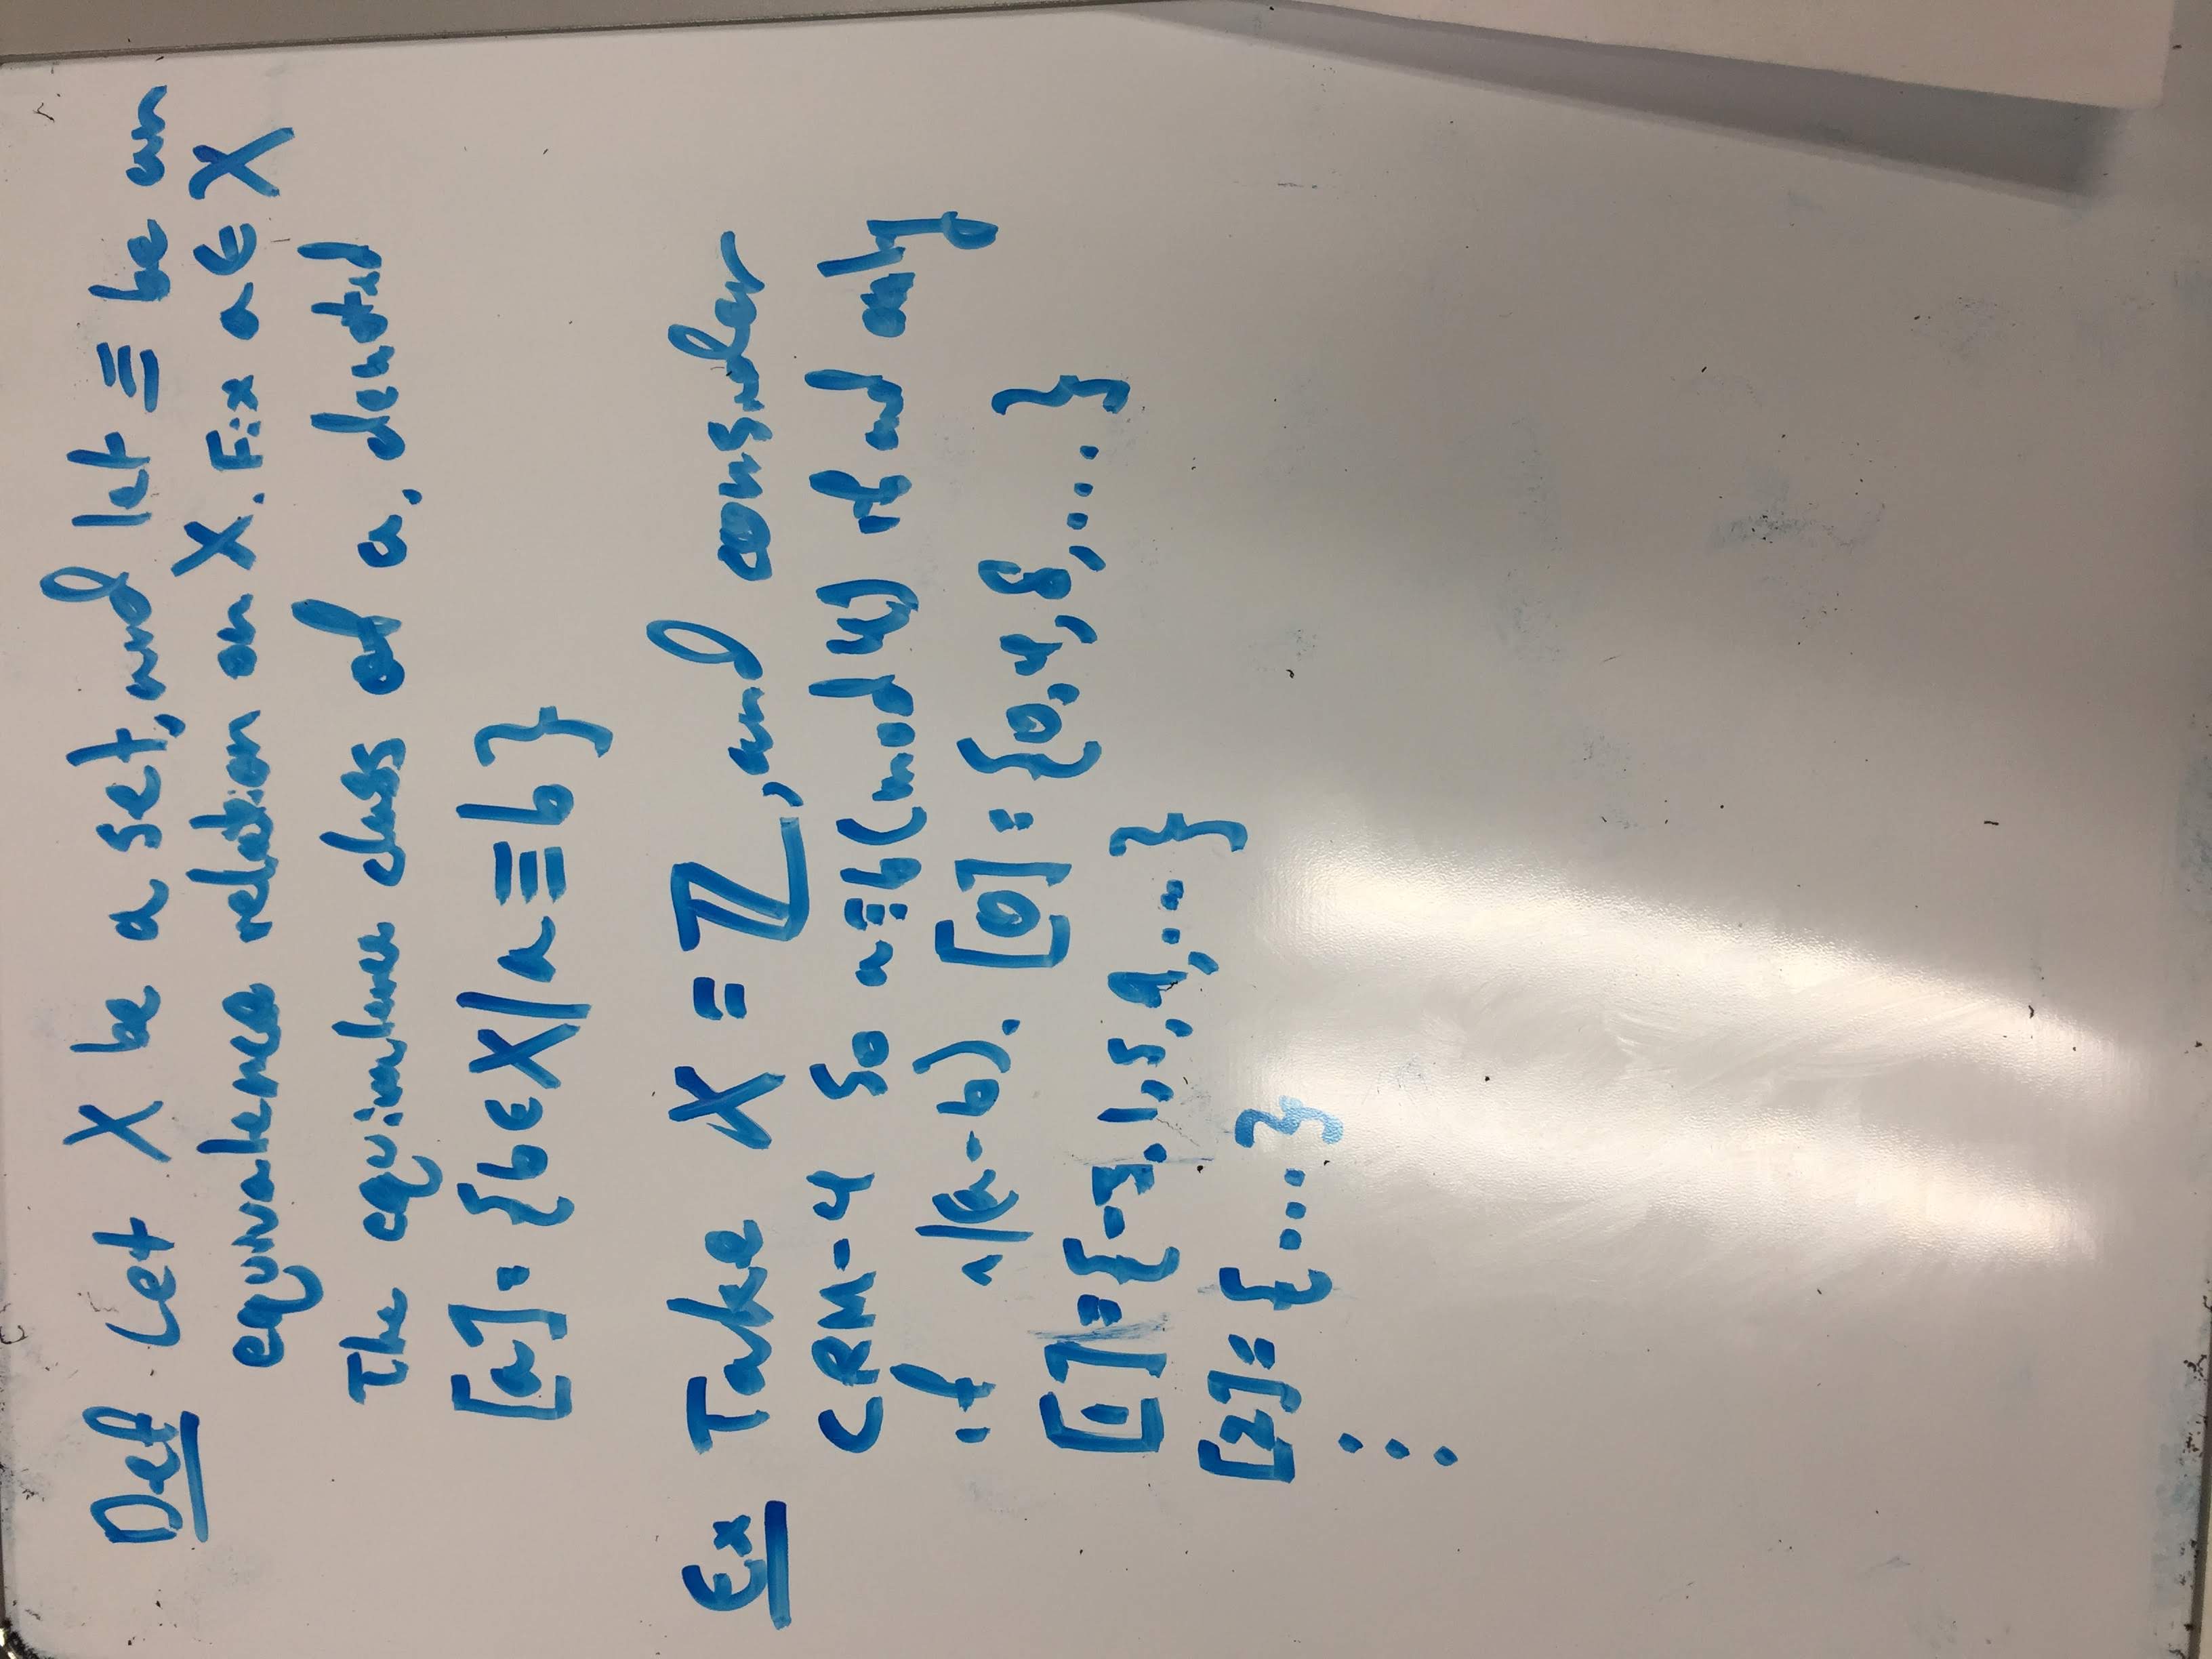 Def Let X be a set, and let ≡ be an
equivalence relation on X. Fix a ∈ X
The equivalence class of a, denoted
[a] = {b∈X|a≡b}
Ex Take X = ℤ, and consider
CRM-4 So a≡b(mod 4) if and only
if n|(a-b). [0] = {0,4,8,...}
[1] = {-3,1,5,9,...}
[2] = {...}
⋮